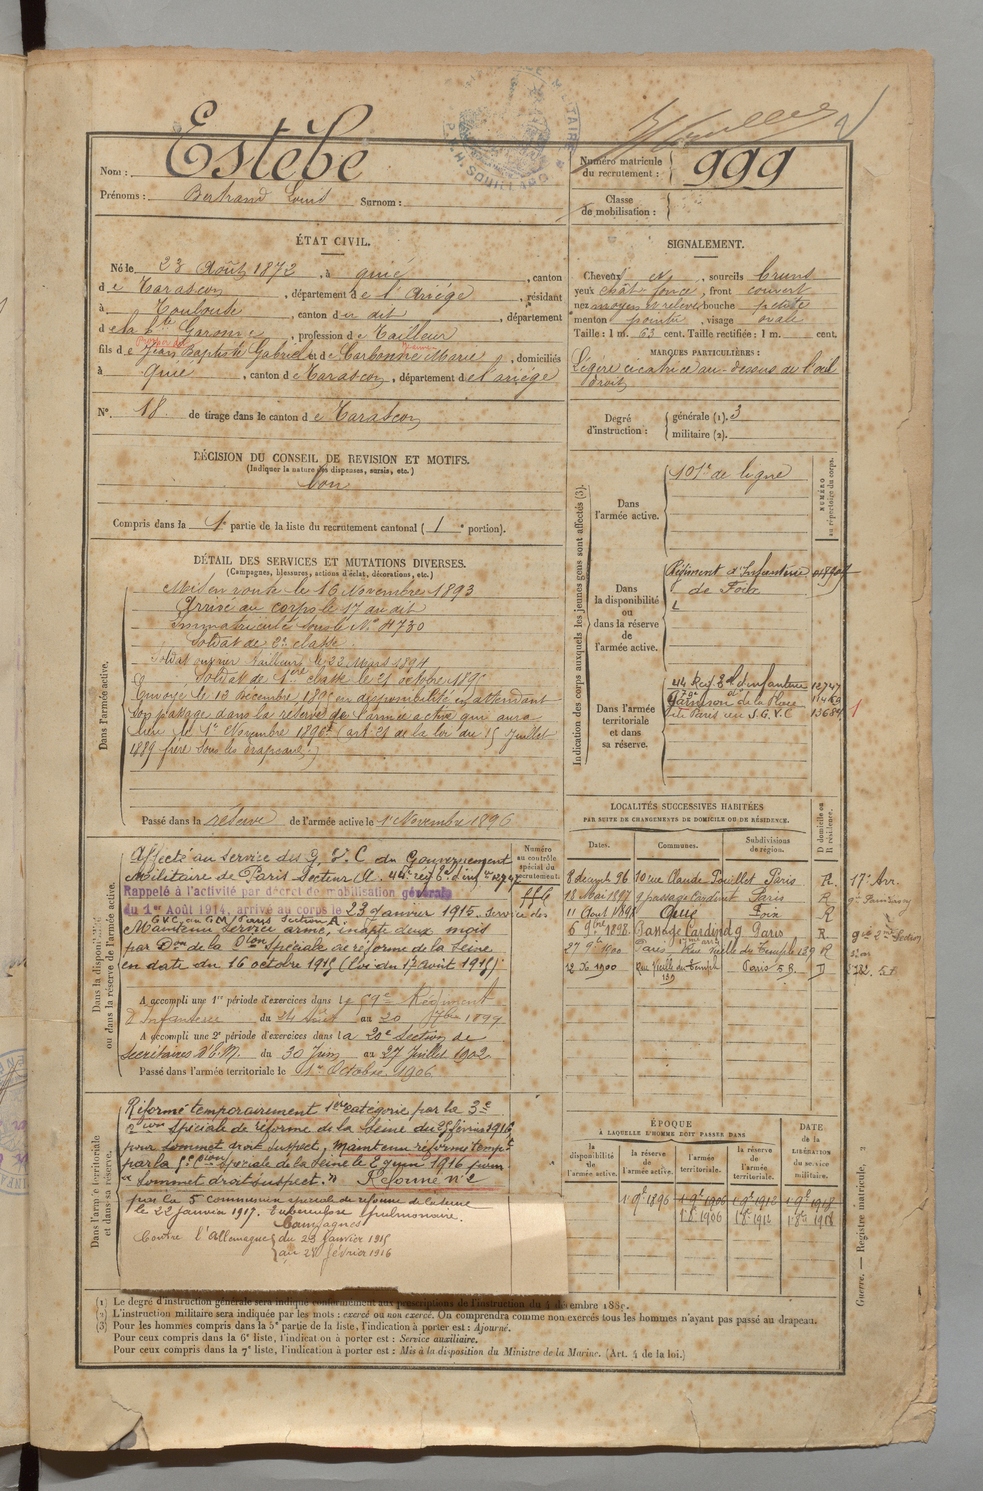 Nom : Estèbe
Prénoms : Bertrand Louis Surnom :
Numéro matricule du recrutement : 999
Classe de mobilisation :
ÉTAT CIVIL.
Né le 23 Août 1872, à Quié, canton
de Tarascon, département de l'Ariège, résidant
à Toulouse, canton du dit, département
de la Hte Garonne, profession de Tailleur
fils de Jean Baptiste Gabriel et de Carbonne Marie, domiciliés
à Quié, canton de Tarascon, département de l'ariège
N°. 18 de tirage dans le canton de Tarascon
SIGNALEMENT.
Cheveux , sourcils bruns
yeux chât. foncé, front couvert
nez moyen relevé bouche petite
menton pointu, visage ovale
Taille : 1 m. 63 cent. Taille rectifiée : 1 m. cent.
MARQUES PARTICULIÈRES :
Légère cicatrice au-dessus de l'œil
droit
Degré d'instruction : générale (1). 3
militaire (2).
DÉCISION DU CONSEIL DE REVISION ET MOTIFS.
(Indiquer la nature des dispenses, sursis, etc.)
bon
Compris dans la 1e partie de la liste du recrutement cantonal (1e portion).
DÉTAIL DES SERVICES ET MUTATIONS DIVERSES.
(Campagnes, blessures, actions d'éclat, décorations, etc.)
Dans l'armée active.
Mis en route le 16 Novembre 1893
Arrivé au corps le 17 au dit
Immatriculé sous le N° 4730
Soldat de 2e classe
Soldat ouvrier tailleur le 22 Mars 1894
Soldat de 1ère classe le 21 octobre 1895
Envoyé le 13 Décembre 1895 en disponibilité en attendant
son passage dans la réserve de l'armée active qui aura
lieu le 1er Novembre 1896 (art. 21 de la loi du 15 Juillet
1889 frère sous les drapeaux.)
Passé dans la réserve de l'armée active le 1er Novembre 1896
Indication des corps auxquels les jeunes gens sont affectés (3).
NUMÉRO au répertoire du corps.
Dans l'armée active.
101e de ligne
Dans la disponibilité ou dans la réserve de l'armée active.
Régiment d'Infanterie
de Foix
Dans l'armée territoriale et dans sa réserve.
44 Reg Tal d'infanterie 12747
Garnison de la Place
de Paris au S.G.V.C 13689
1
LOCALITÉS SUCCESSIVES HABITÉES
PAR SUITE DE CHANGEMENTS DE DOMICILE OU DE RÉSIDENCE.
Dates. Communes. Subdivisions de région. D domicile ou R résidence.
8 décemb 96 10 rue Claude Pouillet Paris R. 17e Arr.
13 Mai 1897 9 passage Cardinet Paris R
11 Août 1898 Quié Foix R
5 9bre 1898 Passage Cardinet 9 Paris R
27 9bre 1900 Paris, Rue Vieille du Temple 139 R
12 Xe 1900 Rue Vieille du Temple 139 Paris D
Dans la disponibilité ou dans la réserve de l'armée active.
Numéro au contrôle spécial du recrutement.
Affecté au service des G. V. C. du Gouvernement
Militaire de Paris Secteur
Rappelé à l'activité par décret de mobilisation générale
du 1er Août 1914, arrivé au corps le 23 Janvier 1915. Service des
G.V.C. du G.M. Paris Section A.
Maintenu Service armé, inapte deux mois
par Don de la Cion Spéciale de réforme de la Seine
en date du 16 octobre 1915 (Loi du 17 août 1915)
A accompli une 1re période d'exercices dans le Régiment
d'Infanterie du 24 Août au 20 7bre 1899
A accompli une 2e période d'exercices dans la 20e Section de
Secrétaires d'E.M. du 30 Juin au 27 Juillet 1902
Passé dans l'armée territoriale le 1er Octobre 1906
Dans l'armée territoriale et dans sa réserve.
Réformé temporairement 1ère catégorie par la 3e
Cion spéciale de réforme de la Seine du 25 février 1916
pour sommet droit suspect, Maintenu réformé tempre
par la 5e Cion spéciale de la Seine le 2 juin 1916 pour
"sommet droit suspect." Réformé n° 2
par la 5 commission spéciale de réforme de la Seine
le 22 janvier 1917. Tuberculose pulmonaire.
Campagnes
Contre l'Allemagne du 23 Janvier 1915
au 24 février 1916
ÉPOQUE
À LAQUELLE L'HOMME DOIT PASSER DANS
la disponibilité de l'armée active. la réserve de l'armée active. l'armée territoriale. la réserve de l'armée territoriale.
DATE de la LIBÉRATION du service militaire.
1 9e 1896 1 9e 1906 1 9e 1912 1 9e 1918
1 8e 1906 1 8e 1912 1 8e 1918
Guerre. — Registre matricule, 2
(1) Le degré d'instruction générale sera indiqué conformément aux prescriptions de l'instruction du 4 décembre 1889.
(2) L'instruction militaire sera indiquée par les mots : exercé ou non exercé. On comprendra comme non exercés tous les hommes n'ayant pas passé au drapeau.
(3) Pour les hommes compris dans la 5e partie de la liste, l'indication à porter est : Ajourné.
Pour ceux compris dans la 6e liste, l'indication à porter est : Service auxiliaire.
Pour ceux compris dans la 7e liste, l'indication à porter est : Mis à la disposition du Ministre de la Marine. (Art. 4 de la loi.)